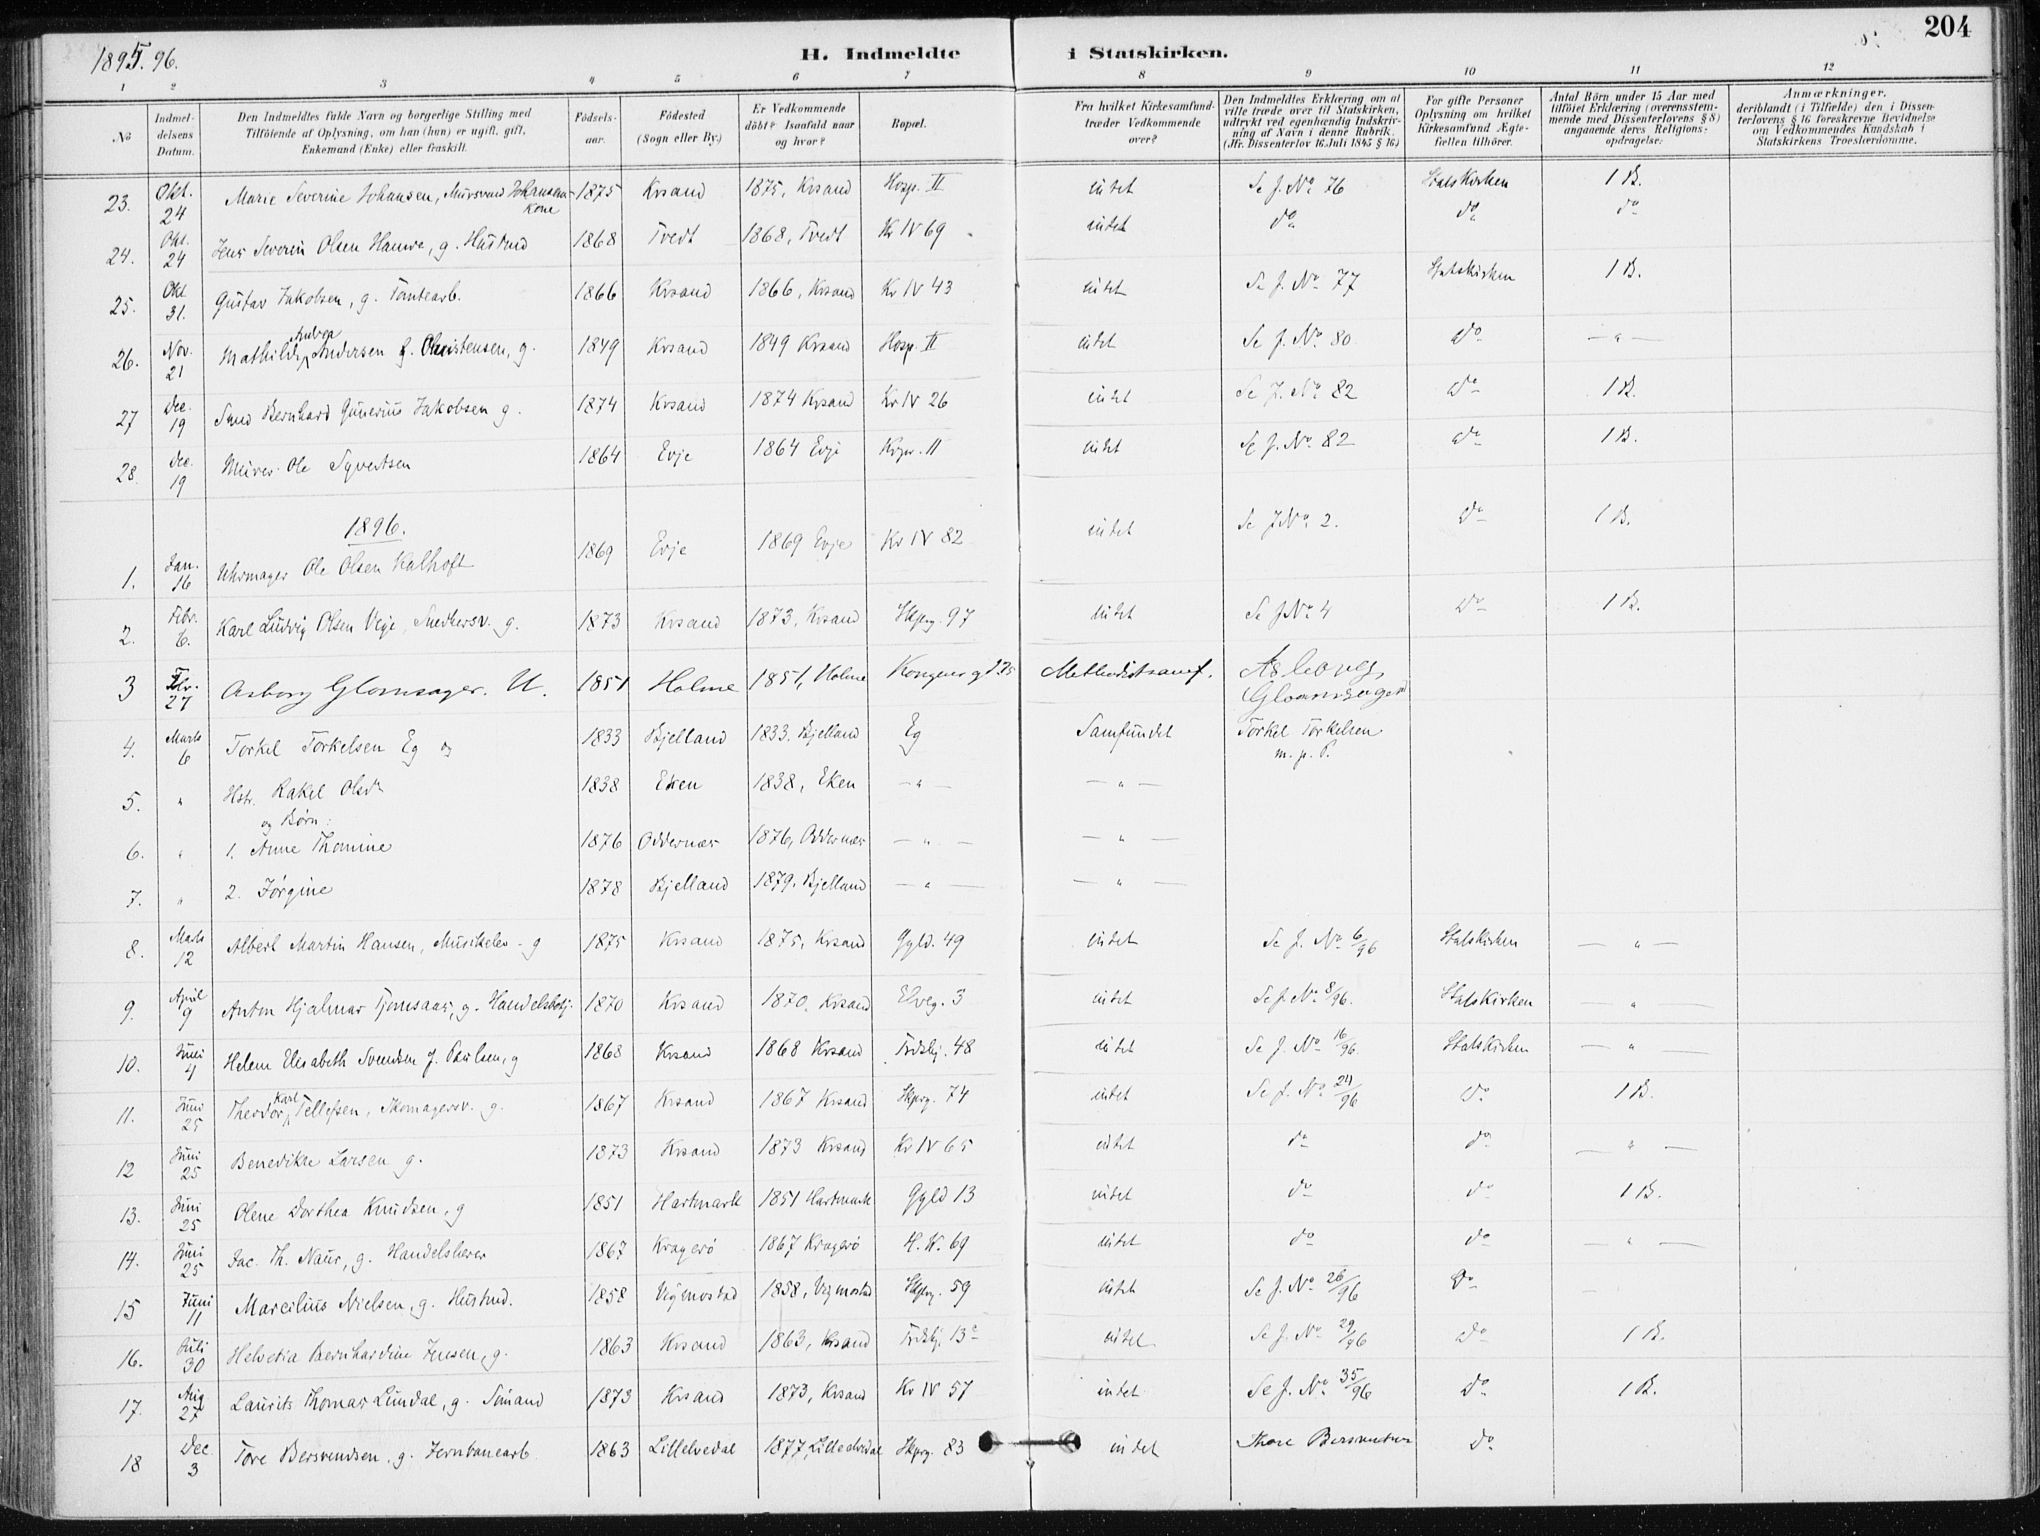 1895. 96.
H. Indmeldte i Statskirken.
204
1 2 3 4 5 6 7 8 9 10 11 12
No
Indmeldelsens Datum.
Den Indmeldtes fulde Navn og borgerlige Stilling med Tilföiende af Oplysning, om han (hun) er ugift, gift, Enkemand (Enke) eller fraskilt.
Födselsaar.
Födested (Sogn eller By.)
Er Vedkommende döbt? Isaafald naar og hvor?
Bopæl.
Fra hvilket Kirkesamfund træder Vedkommende over?
Den Indmeldtes Erklæring om at ville træde over til Statskirken, udtrykt ved egenhændig Indskrivning af Navn i denne Rubrik. (Jfr. Dissenterlov 16. Juli 1845 § 16.)
For gifte Personer Oplysning om hvilket Kirkesamfund Ægtefællen tilhörer.
Antal Börn under 15 Aar med tilföiet Erklæring (overensstemmende med Dissenterlovens § 8) angaaende deres Religionsopdragelse.
Anmærkninger, deriblandt (i Tilfælde) den i Dissenterlovens § 16 foreskrevne Bevidnelse om Vedkommendes Kundskab i Statskirkens Troeslærdomme.
23. Okt. 24 Marie Severine Johansen, Mursvend Johansens Kone 1875 Krsand 1875, Krsand Hosp. II intet Se J. No 76 Statskirken 1 B.
24. Okt. 24 Jens Severin Olsen Hamre, g. Husmd 1868 Tvedt 1868, Tvedt Kr IV 69 intet do do do
25. Okt 31. Gustav Jakobsen, g. Tomtearb. 1866 Krsand 1866, Krsand Kr IV 43 intet Se J. No 77 Statskirken 1 B.
26. Nov. 21 Mathilde Andrea Andersen f. Christensen, g. 1849 Krsand 1849 Krsand Hosp. II intet Se J. No 80 do — " —
27 Dec. 19 Smed Bernhard Gunerius Jakobsen g. 1874 Krsand 1874 Krsand Kr IV 26 intet Se J. No 82 do 1 B.
28. Dec. 19 Murer Ole Syvertsen 1864 Evje 1864 Evje 11 intet Se J. No 82 do 1 B.
1896.
1. Jan. 16 Uhrmager Ole Olsen Kalhoft 1869 Evje 1869 Evje Kr IV 82 intet Se J No 2. do 1 B.
2. Febr. 6. Karl Ludvig Olsen Veje, Snedkersv. g. 1873 Krsand 1873, Krsand Skprg. 97 intet Se J No 4 do 1 B.
3 Febr. 27 Asborg Glomsager. U. 1851 Holme 1851, Holme Kongensgd 35 Methodistsamf. Asborg Glomsager
4. Marts 6 Torkel Torkelsen Eg og 1833 Bjelland 1833. Bjelland Eg Samfundet Torkel Torkelsen m. p. P.
5. " Hstr. Rakel Olsdr 1838 Eken 1838, Eken — " — — " —
og Børn:
6. " 1. Anne Thomine 1876 Oddernæs 1876, Oddernæs — " — — " —
7. " 2. Jørgine 1878 Bjelland 1879. Bjelland — " — — " —
8. Marts 12 Albert Martin Hansen, Musikelev - g 1875 Krsand 1875, Krsand Gyld. 49 intet Se J. No 6/96 Statskirken — " —
9. April 9 Anton Hjalmar Tjomsaas, g. Handelsbetj. 1870 Krsand 1870, Krsand Elveg. 3 intet Se J. No 8/96. Statskirken — " —
10. Juni 4 Helene Elisabeth Svendsen f. Paulsen, g 1868 Krsand 1868 Krsand Tvdskj. 48 intet Se J. No 16/96. Statskirken — " —
11. Juni 25 Theodor Karl Tellefsen, Skomagersv. g. 1867 Krsand 1867 Krsand Skprg. 74 intet Se J. No 24/96 do 1 B.
12 Juni 25 Benedikte Larsen g. 1873 Krsand 1873 Krsand Kr IV 65 intet do do — " —
13. Juni 25 Olene Dorthea Knudsen, g 1851 Hartmark 1851 Hartmark Gyld 13 intet do do 1 B.
14. Juni 25 Jac. Th. Naur, g. Handelsbetj 1867 Kragerø 1867 Kragerø H. K. 69 intet do do — " —
15 Juni 11 Marcilius Nielsen, g. Husmd. 1858 Vigmostad 1858, Vigmostad Skprg. 59 intet Se J. No 26/96 do
16. Juli 30 Helvetia Bernhardine Jensen, g. 1863 Krsand 1863, Krsand Tvdskj. 13c intet Se J. No 29/96 do 1 B.
17. Aug 27 Laurits Thomas Lundal, g. Sømand 1873 Krsand 1873, Krsand Kr IV 57 intet Se J. No 35/96 do 1 B.
18 Dec 3 Tore Bersvendsen, g. Jernbanearb. 1863 Lilleelvedal 1877, Lilleelvedal Skprg. 83 intet Thore Bersvendsen do